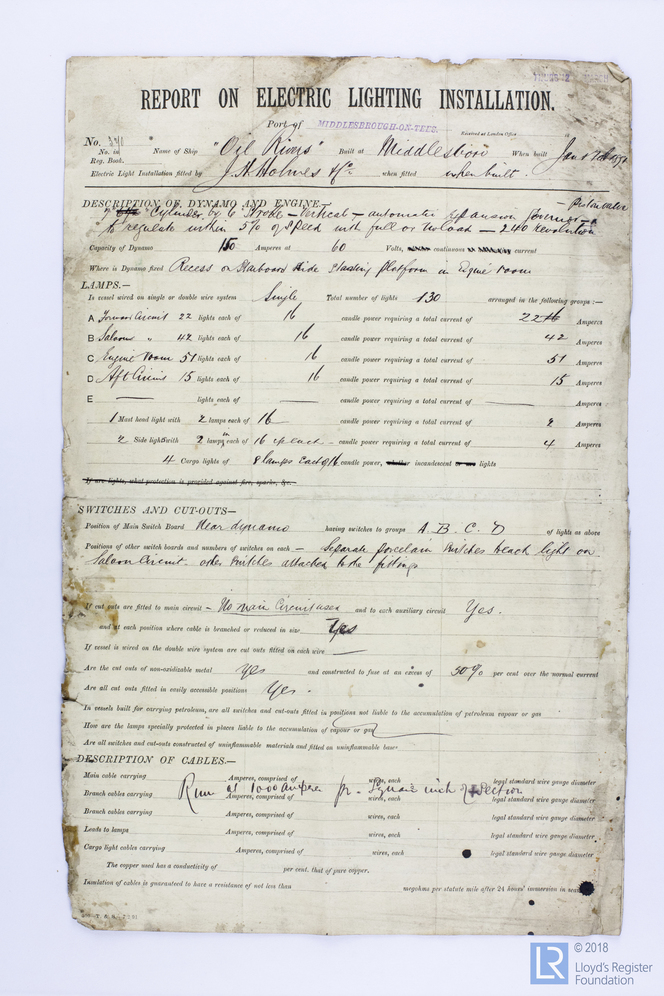 REPORT ON ELECTRIC LIGHTING INSTALLATION.
Port of MIDDLESBROUGH-ON-TEES.
Received at London Office
No. Name of Ship "Oil Rivers" Built at Middlesboro When built Jan & Feb
No. in Reg. Book.
Electric Light Installation fitted by J. H. Holmes & Co when fitted when built.
DESCRIPTION OF DYNAMO AND ENGINE.
Cylinder by 6 Stroke - Vertical - automatic Expansion Governor -
to regulate within 5% of speed with full or no load - 240 Revolutions
Capacity of Dynamo 150 Amperes at 60 Volts, continuous current
Where is Dynamo fixed Recess on Starboard Side Starting platform in Engine room
LAMPS.—
Is vessel wired on single or double wire system Single Total number of lights 130 arranged in the following groups :—
A Forward Circuit 22 lights each of 16 candle power requiring a total current of 22 Amperes
B Saloon " 42 lights each of 16 candle power requiring a total current of 42 Amperes
C Engine room 51 lights each of 16 candle power requiring a total current of 51 Amperes
D Aft Circuit 15 lights each of 16 candle power requiring a total current of 15 Amperes
E — lights each of — candle power requiring a total current of — Amperes
1 Mast head light with 2 lamps each of 16 candle power requiring a total current of 2 Amperes
2 Side light with 2 lamps in each of 16 cp each - candle power requiring a total current of 4 Amperes
4 Cargo lights of 8 lamps each of 16 candle power, whether incandescent or arc lights
If arc lights, what protection is provided against fire, sparks, &c.
SWITCHES AND CUT-OUTS—
Position of Main Switch Board Near dynamo having switches to groups A. B. C. D of lights as above
Positions of other switch boards and numbers of switches on each — Separate porcelain switches to each light on
Saloon Circuit - other switches attached to the fittings
If cut outs are fitted to main circuit — No main Circuit used and to each auxiliary circuit Yes.
and at each position where cable is branched or reduced in size Yes
If vessel is wired on the double wire system are cut outs fitted in each wire —
Are the cut outs of non-oxidizable metal Yes and constructed to fuse at an excess of 50% per cent over the normal current
Are all cut outs fitted in easily accessible positions Yes.
In vessels built for carrying petroleum, are all switches and cut-outs fitted in positions not liable to the accumulation of petroleum vapour or gas
How are the lamps specially protected in places liable to the accumulation of vapour or gas
Are all switches and cut-outs constructed of uninflammable materials and fitted on uninflammable base
DESCRIPTION OF CABLES.—
Main cable carrying Amperes, comprised of wires, each legal standard wire gauge diameter
Run at 1000 Amperes pr. Square inch of Section
Branch cables carrying Amperes, comprised of wires, each legal standard wire gauge diameter
Branch cables carrying Amperes, comprised of wires, each legal standard wire gauge diameter
Leads to lamps Amperes, comprised of wires, each legal standard wire gauge diameter
Cargo light cables carrying Amperes, comprised of wires, each legal standard wire gauge diameter
The copper used has a conductivity of per cent. that of pure copper.
Insulation of cables is guaranteed to have a resistance of not less than megohms per statute mile after 24 hours' immersion in
© 2018
LR
Lloyd's Register
Foundation